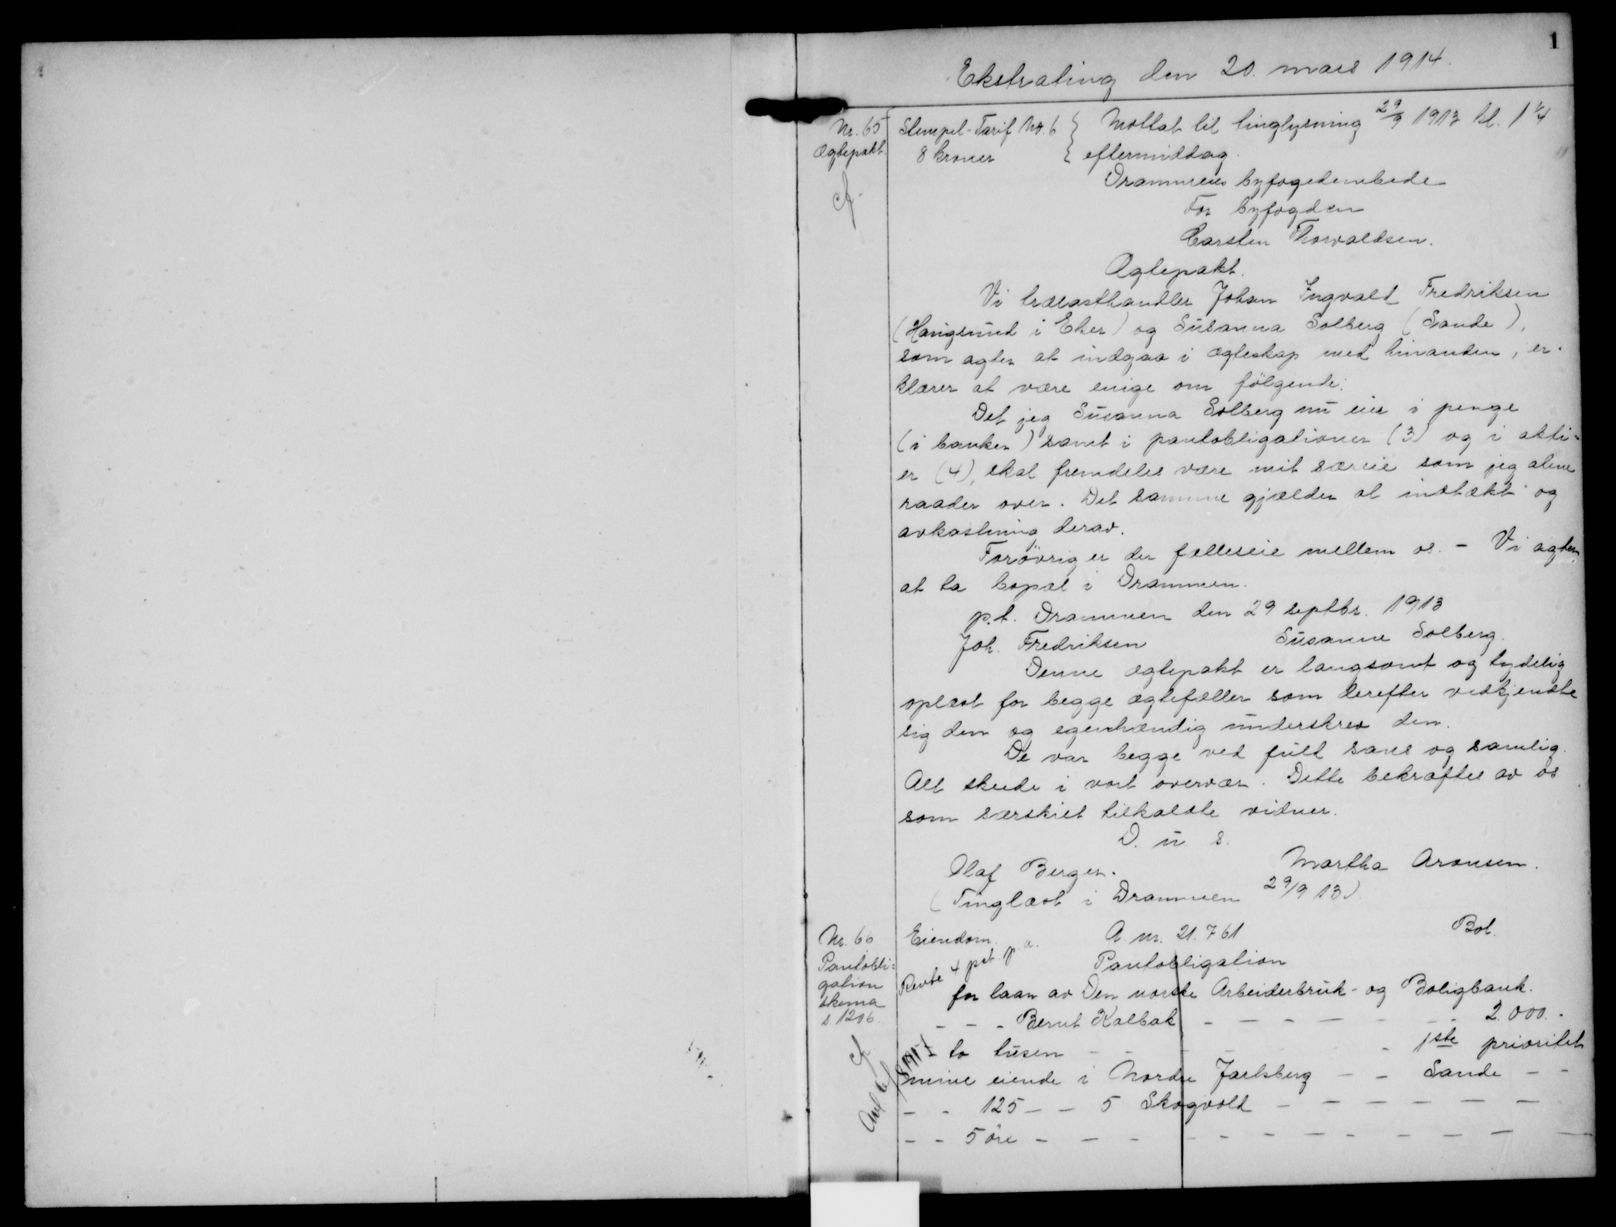 1
Ekstrating den 20. mars 1914.
Nr. 65
Ægtepakt
Stempel-Tarif Nr. 6
8 kroner
Mottat til tinglysning 29/9 1913 kl. 1 1/4
eftermiddag.
Drammens byfogedembede
For byfogden
Carsten Thorvaldsen.
Ægtepakt.
Vi trælasthandler Johan Ingvald Fredriksen
(Haugsund i Eker) og Susanna Solberg (Sande),
som agter at indgaa i ægteskap med hinanden, er-
klærer at være enige om følgende:
Det jeg Susanna Solberg nu eier i penge
(i banken) samt i pantobligationer (3) og i akti-
er (4), skal fremdeles være mit særeie som jeg alene
raader over. Det samme gjælder al indtækt og
avkastning derav.
Forøvrig er der fælleseie mellem os. – Vi agter
at ta bopæl i Drammen.
p.t. Drammen den 29 septbr. 1913
Joh. Fredriksen Susanne Solberg.
Denne ægtepakt er langsomt og tydelig
oplæst for begge ægtefæller som derefter vedkjendte
sig den og egenhændig underskrev den.
De var begge ved fuld sans og samling.
Alt skede i vort overvær. Dette bekræftes av os
som særskilt tilkaldte vidner.
D. u. s.
Olaf Berger. Martha Aronsen.
(Tinglæst i Drammen 29/9 13)
Nr. 66
Pantobli-
gation
skema
s 1206.
Eiendom. A. nr. 21.761 Bol.
Rente 4 pct p. a. Pantobligation
for laan av Den norske Arbeiderbruk- og Boligbank.
– – – Bernt Kalbak – – – – – – – 2.000.-
to tusen – – – – 1ste prioritet
mine eiende i Nordre Jarlsberg – – Sande – –
– – 125 – – 5 Skogvold – – – – – – –
– – 5 øre – – – – – – – – – – –